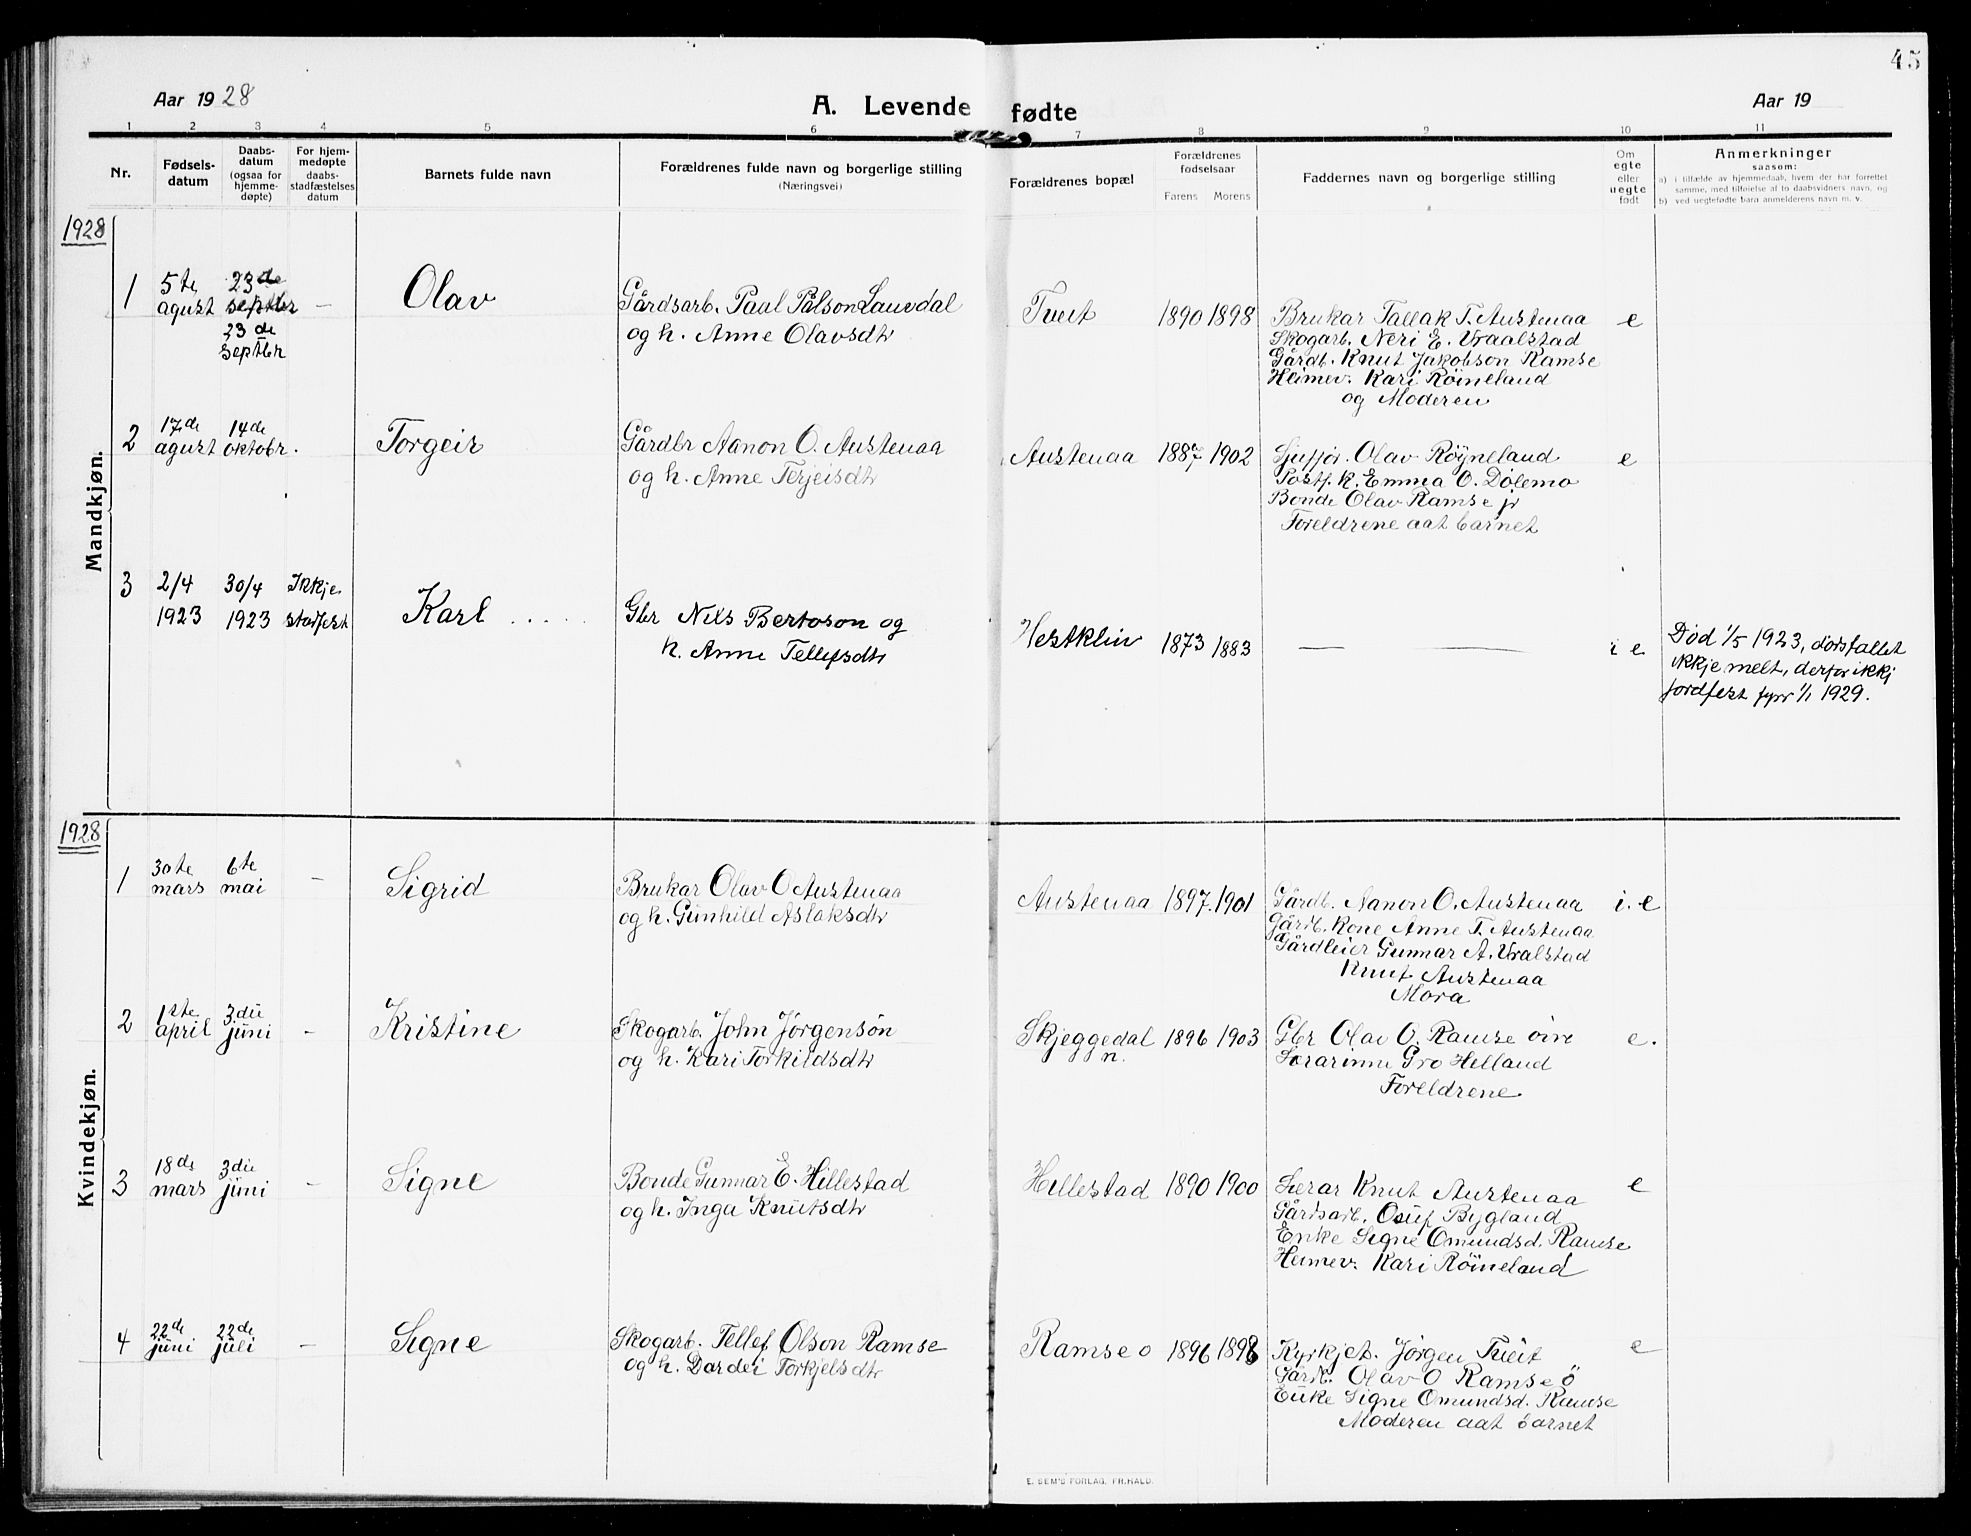 45
Aar 1928
A. Levende fødte
Aar 19
1 2 3 4 5 6 7 8 9 10 11
Nr.
Fødsels-
datum
Daabs-
datum
(ogsaa for
hjemme-
døpte)
For hjem-
medøpte
daabs-
stadfæstelses
datum
Barnets fulde navn
Forældrenes fulde navn og borgerlige stilling
(Næringsvei)
Forældrenes bopæl
Forældrenes
fødselsaar
Farens Morens
Faddernes navn og borgerlige stilling
Om
egte
eller
uegte
født
Anmerkninger
saasom:
a) i tilfælde av hjemmedaab, hvem der har forrettet
samme, med tilføielse af to daabsvidners navn, og
b) ved uegtefødte barn anmelderens navn m. v.
1928
Mandkjøn.
1
5te
agust
23de
septbr
23de
septbr
–
Olav
Gårdsarb. Paal Pålson Lauvdal
og h. Anne Olavsdtr
Tveit
1890 1898
Brukar Tallak T. Austenaa
Skogarb. Neri E. Vraalstad
Gårdb. Knut Jakobson Ramse
Heimev. Kari Røineland
og Moderen
e
2
17de
agust
14de
oktobr.
Torgeir
Gårdbr Aanon O. Austenaa
og h. Anne Terjeisdtr
Austenaa
1887 1902
Sjufjør. Olav Røyneland
Postf. k. Emmea O. Dølemo
Bonde Olav Ramse jr
Foreldrene aat barnet
e
3
2/4
1923
30/4
1923
Ikkje
stadfest
Karl . . . . .
Gbr Nils Bertoson og
h. Anne Tellefsdtr
Hestkliv
1873 1883
— —
i e
Død 1/5 1923, dørsfallet
ikkje melt, derfor ikkj
jordfest fyrr 1/1 1929.
1928
Kvindekjøn.
1
30te
mars
6te
mai
–
Sigrid
Brukar Olav O Austenaa
og h. Gunhild Aslaksdtr
Austenaa
1897. 1901
Gårdb. Aanon O. Austenaa
Gårdb. Kone Anne T. Austenaa
Gårdleier Gunnar A. Vralstad
Knut Austenaa
Mora
i. e
2
1ste
april
3die
juni
–
Kristine
Skogarb. John Jørgensøn
og h. Kari Torkildsdtr
Skjeggedal
n.
1896 1903
Gbr Olav O. Ramse øvre
Lærarinne Gro Helland
Foreldrene
e.
3
18de
mars
3die
juni
–
Signe
Bonde Gunnar E. Hillestad
og h. Inga Knutsdtr
Hillestad
1890 1900
Lærar Knut Austenaa
Gårdsarb. Osuf Bygland
Enke Signe Omundsd. Ramse
Heimev. Kari Røineland
e
4
22de
juni
22de
juli
–
Signe
Skogarb. Tellef Olson Ramse
og h. Dardei Torkjelsdtr
Ramse o
1896 1898
Kyrkjet. Jørgen Tveit
Gårdb. Olav O Ramse ö
Enke Signe Omundsd. Ramse
Moderen aat barnet
e
E. SEM'S FORLAG, FR.HALD.